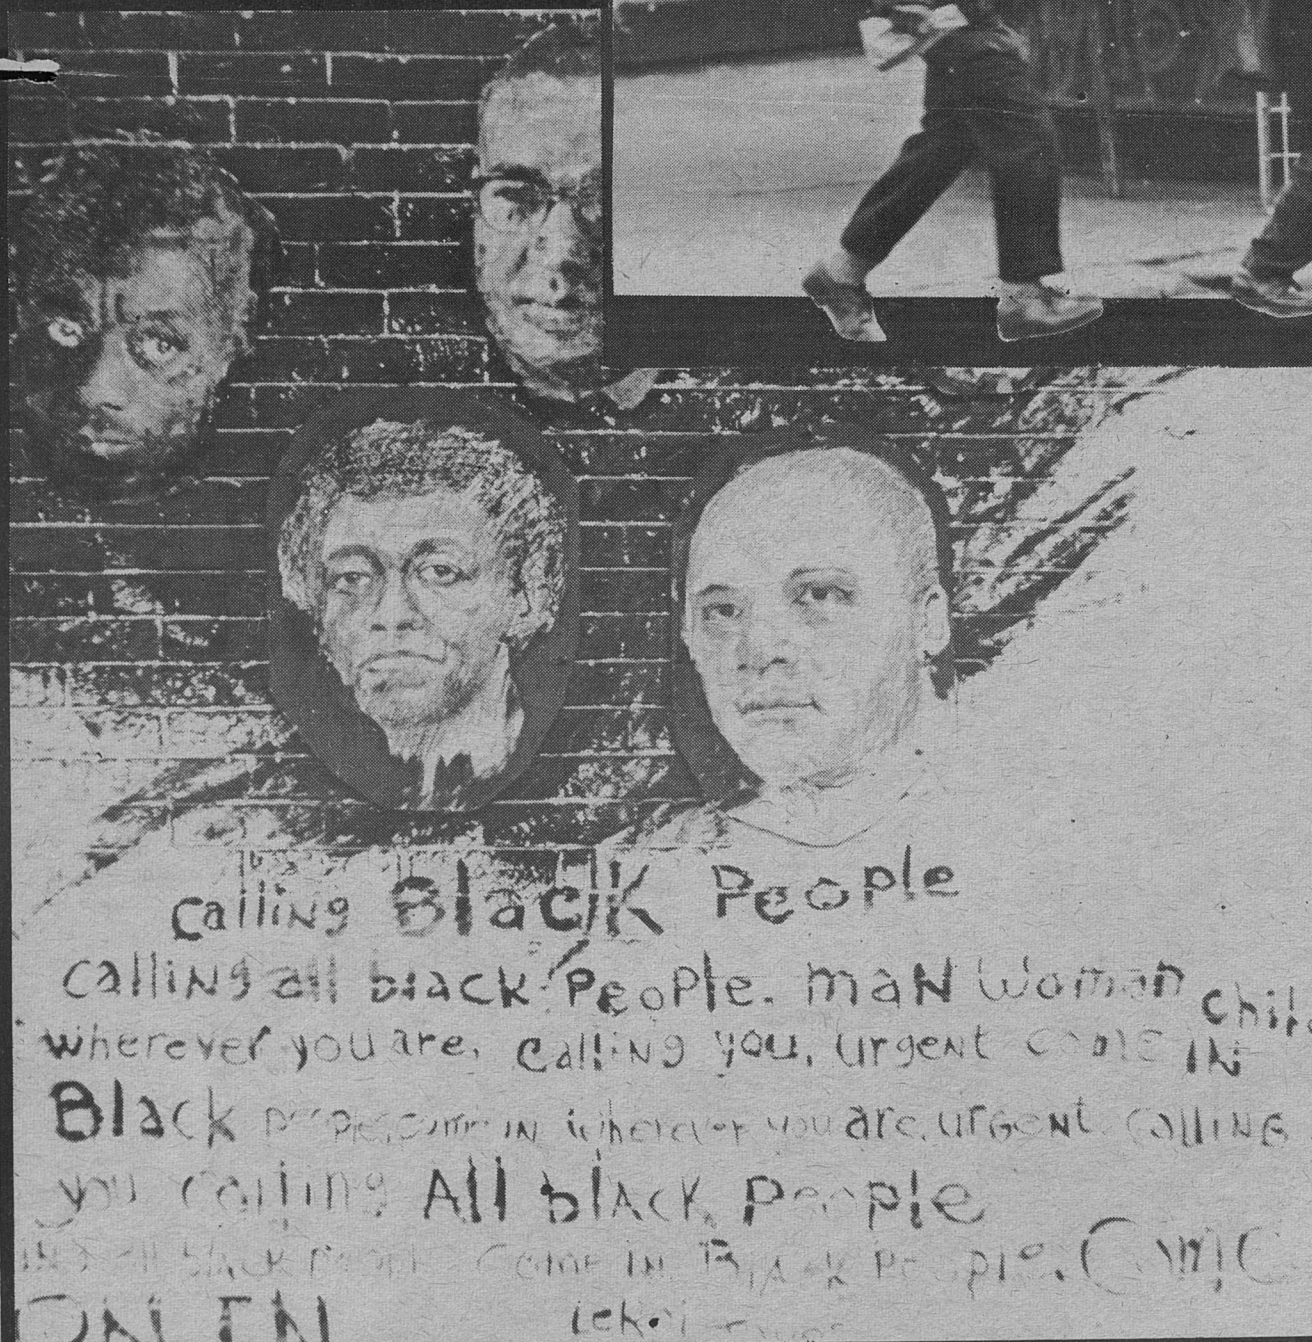 calling Black People
calling all black People. maN Woman Chil
wherever you are, calling you, urgent come IN
Black people, come in wherever you are, urgent calling
you calling All black People
all black People come in. Black People, Come
ON IN